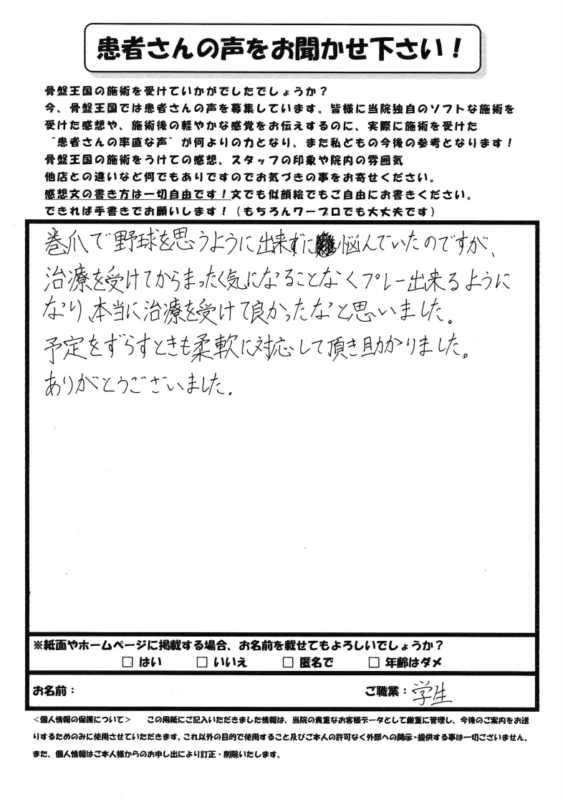 患者さんの声をお聞かせ下さい！
骨盤王国の施術を受けていかがでしたでしょうか？
今、骨盤王国では患者さんの声を募集しています。皆様に当院独自のソフトな施術を
受けた感想や、施術後の軽やかな感覚をお伝えするのに、実際に施術を受けた
"患者さんの率直な声"が何よりの力となり、また私どもの今後の参考となります！
骨盤王国の施術をうけての感想、スタッフの印象や院内の雰囲気
他店との違いなど何でもありですのでお気づきの事をお寄せください。
感想文の書き方は一切自由です！文でも似顔絵でもご自由にお書きください。
できれば手書きでお願いします！（もちろんワープロでも大丈夫です）
巻爪で野球を思うように出来ずに悩んでいたのですが、
治療を受けてからまったく気になることなくプレー出来るように
なり、本当に治療を受けて良かったなと思いました。
予定をずらすときも柔軟に対応して頂き助かりました。
ありがとうございました。
※紙面やホームページに掲載する場合、お名前を載せてもよろしいでしょうか？
□ はい □ いいえ □ 匿名で □ 年齢はダメ
お名前： ご職業：学生
＜個人情報の保護について＞ この用紙にご記入いただきました情報は、当院の貴重なお客様データとして厳重に管理し、今後のご案内をお送
りするためのみに使用させていただきます。これ以外の目的で使用すること及びご本人の許可なく外部への開示・提供する事は一切ございません。
また、個人情報はご本人様からのお申し出により訂正・削除いたします。